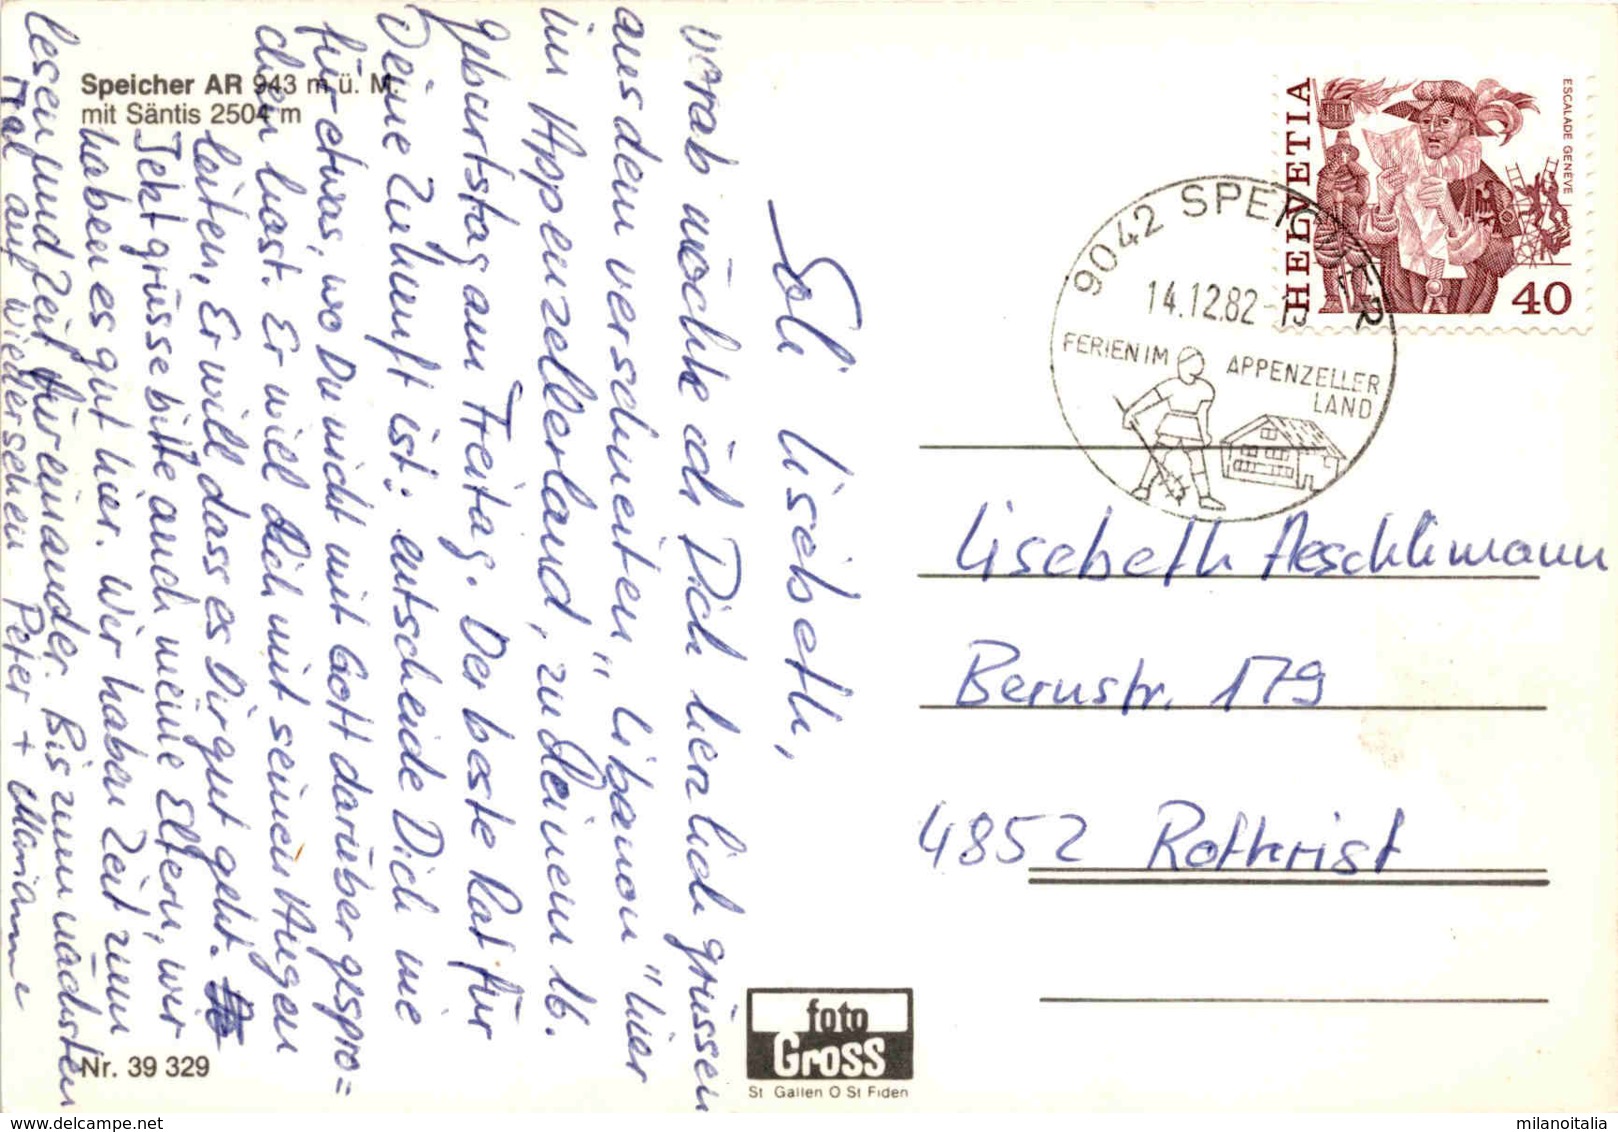 Speicher AR 943 m ü. M.
mit Säntis 2504 m
Soli Lisebeth,
vorab möchte ich Dich herzlich grüssen
aus dem verschneiten „Libanon" hier
im Appenzellerland, zu Deinem 16.
Geburtstag am Freitag. Der beste Rat für
Deine Zukunft ist: entscheide Dich nie
für etwas, wo Du nicht mit Gott darüber gespro=
chen hast. Er will dich mit seinen Augen
leiten, Er will dass es Dir gut geht.
Jetzt grüsse bitte auch meine Eltern, wir
haben es gut hier. Wir haben Zeit zum
lesen und Zeit für einander. Bis zum nächsten
Mal auf wiedersehen Peter + Marianne
Nr. 39 329
foto
Gross
St Gallen O St Fiden
HELVETIA
ESCALADE GENEVE
40
9042 SPEICHER
14.12.82
FERIEN IM APPENZELLER
LAND
Lisebeth Aeschlimann
Bernstr. 179
4852 Rothrist
www.delcampe.net
milanoitalia